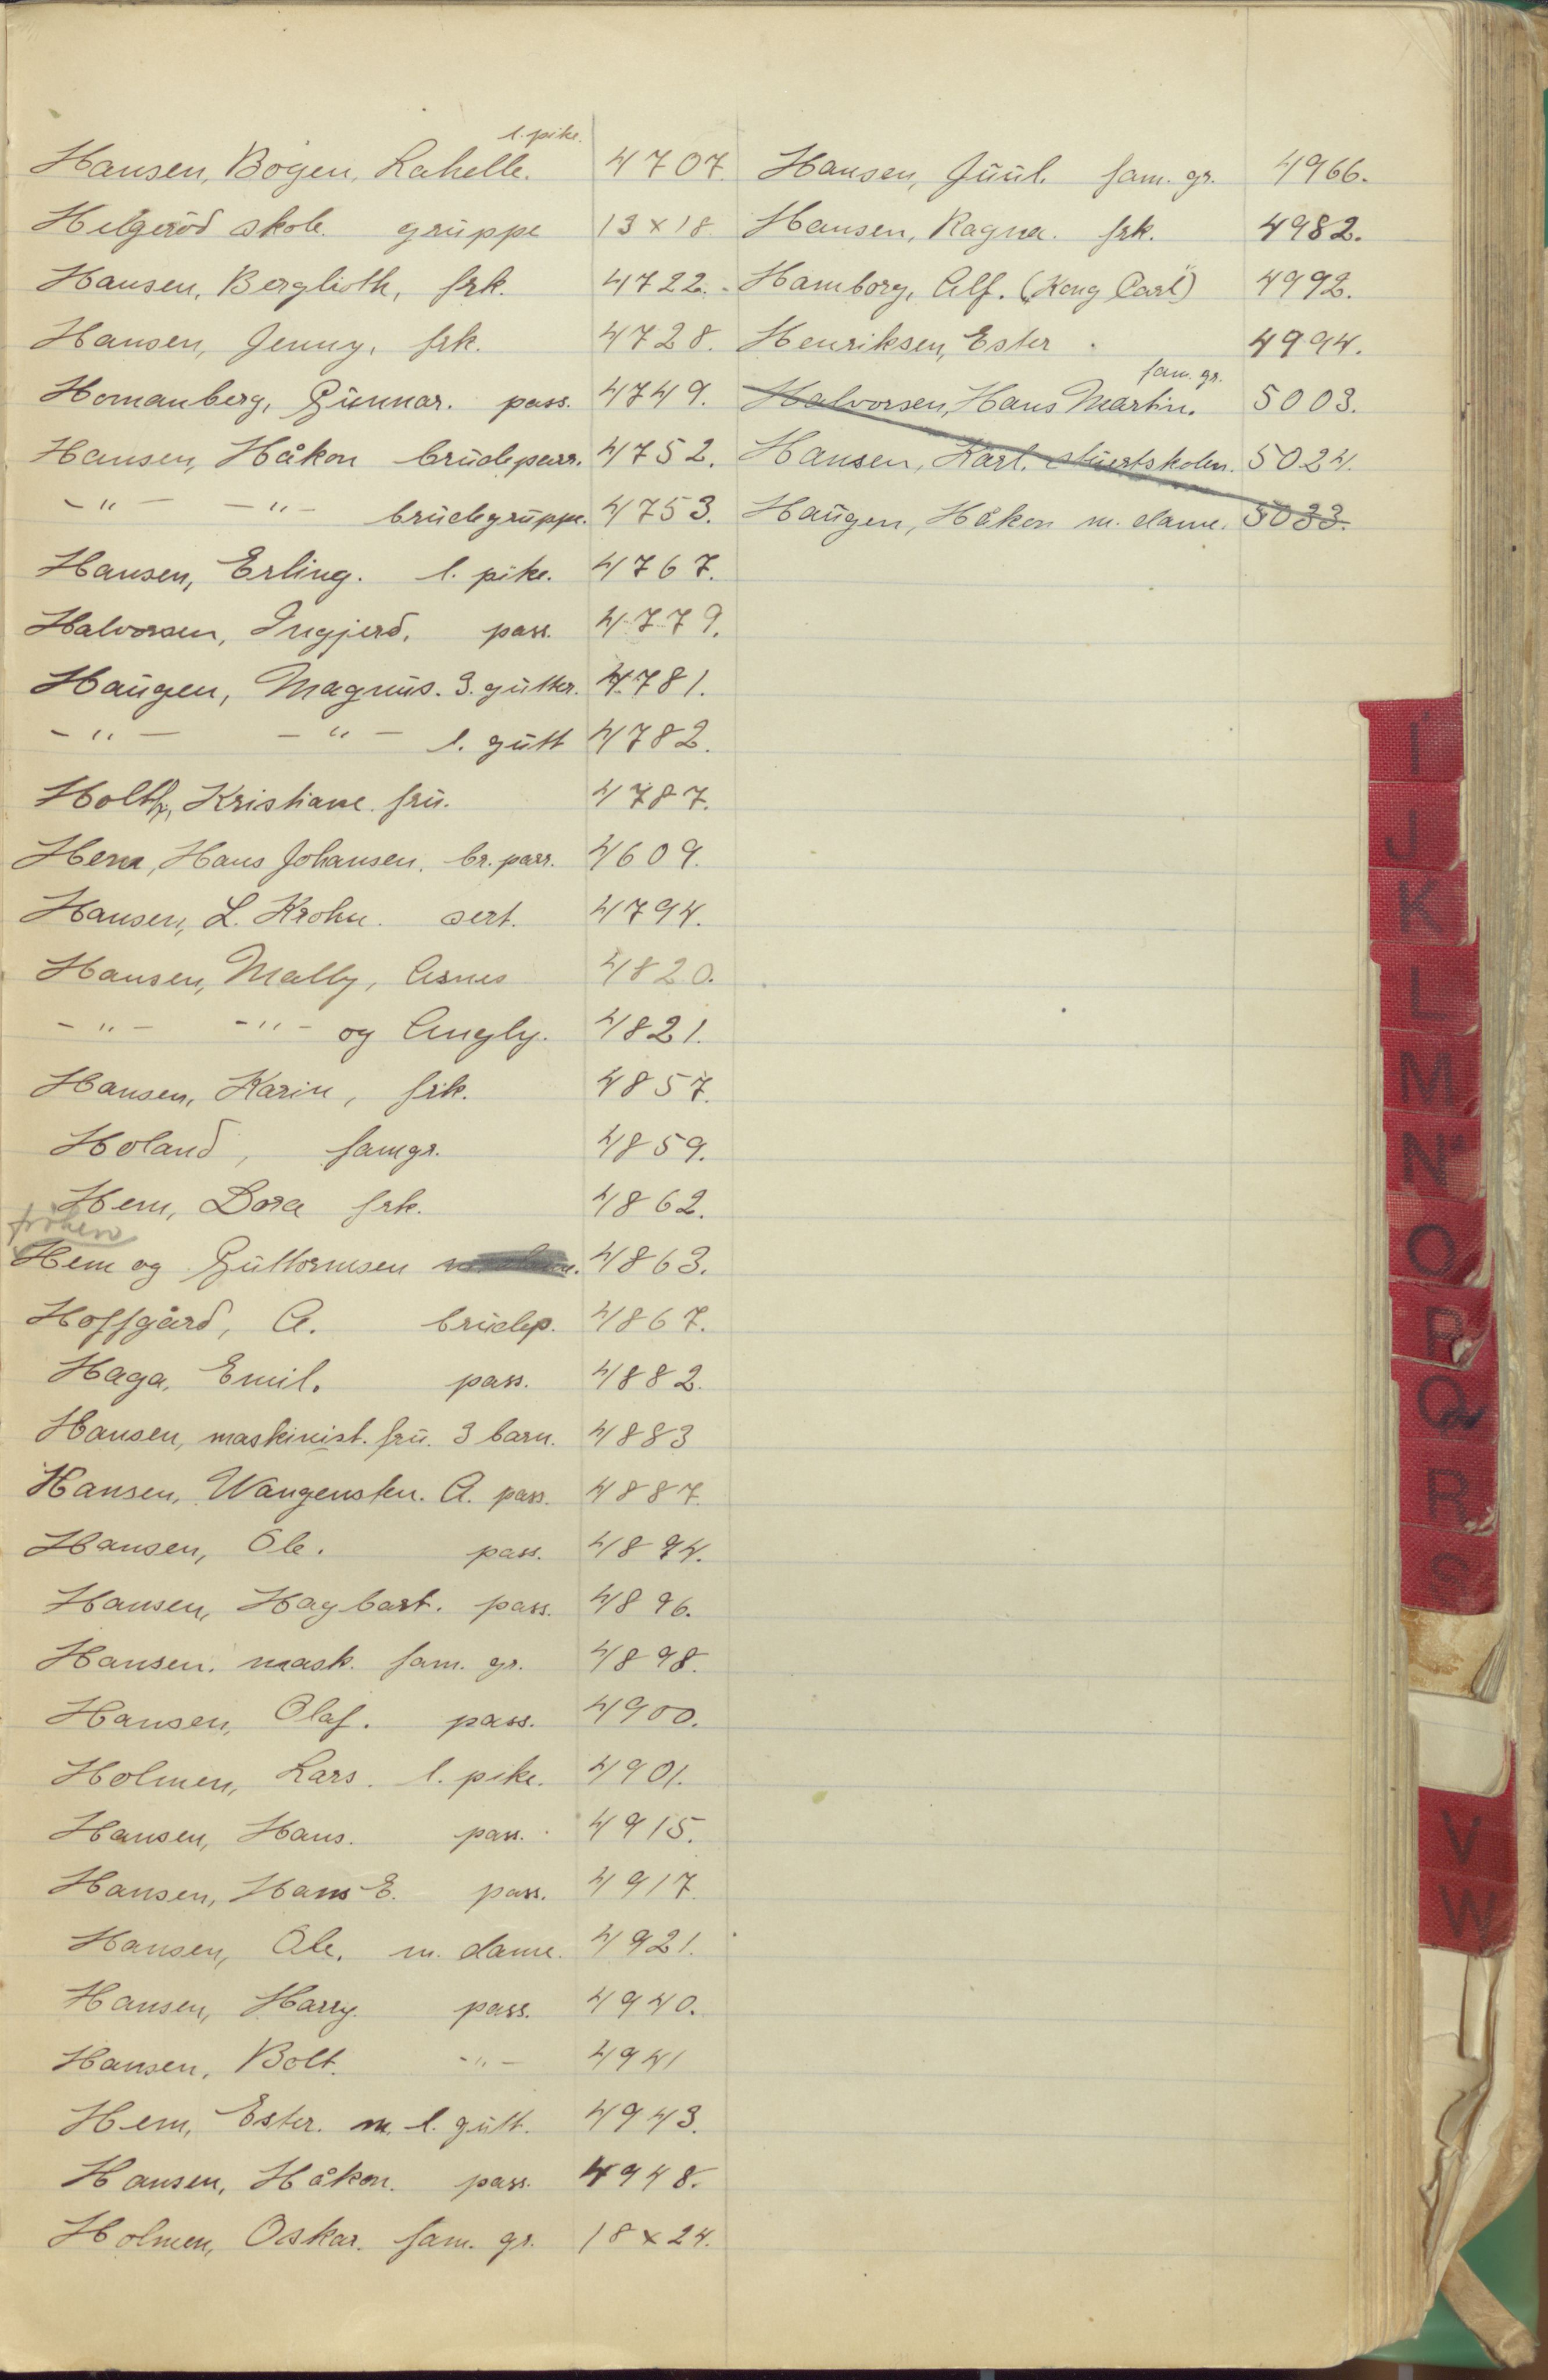 l. pike.
Hansen, Bogen, Lahelle. 4707.
Helgerød skole. gruppe 13 x 18.
Hansen, Berglioth, frk. 4722.
Hansen, Jenny, frk. 4728.
Homanberg, Gunnar. pass. 4749.
Hansen, Håkon brudeparr. 4752.
-"- -"- brudegruppe. 4753.
Hansen, Erling. l. pike. 4767.
Halvorsen, Ingjerd. pass. 4779.
Haugen, Magnus. 3. gutter. 4781.
-"- -"- l. gutt 4782.
Holth, Kristiane. fru. 4787.
Hem, Hans Johansen. br. parr. 4609.
Hansen, L. Krohn. sert. 4794.
Hansen, Mally, Asnes 4820.
-"- -"- og Angly. 4821.
Hansen, Karin, frk. 4857.
Holand, famgr. 4859.
Hem, Dora frk. 4862.
frøken
Hem og Guttormsen 4863.
Hoffgård, A. brudep. 4867.
Haga, Emil. pass. 4882.
Hansen, maskinist. fru. 3 barn. 4883
Hansen, Wangensten. A. pass. 4887.
Hansen, Ole. pass. 4894.
Hansen, Hagbart. pass. 4896.
Hansen. mask. fam. gr. 4898.
Hansen, Olaf. pass. 4900.
Holmen, Lars. l. pike. 4901.
Hansen, Hans. pass. 4915.
Hansen, Hans E. pass. 4917.
Hansen, Ole. m. dame. 4921.
Hansen, Harry. pass. 4940.
Hansen, Bolt. -"- 4941
Hem, Ester. m. l. gutt. 4943.
Hansen, Håkon. pass. 4948.
Holmen, Oskar. fam. gr. 18 x 24.
Hansen, Juul. fam. gr. 4966.
Hansen, Ragna. frk. 4982.
Hamborg, Alf. („Kong Carl") 4992.
Henriksen, Ester. 4994.
fam. gr.
Halvorsen, Hans Martin. 5003.
Hansen, Karl. stuertskolen. 5024.
Haugen, Håkon m. dame. 5033.
I
J
K
L
M
N
O
P
Q
R
S
V
W